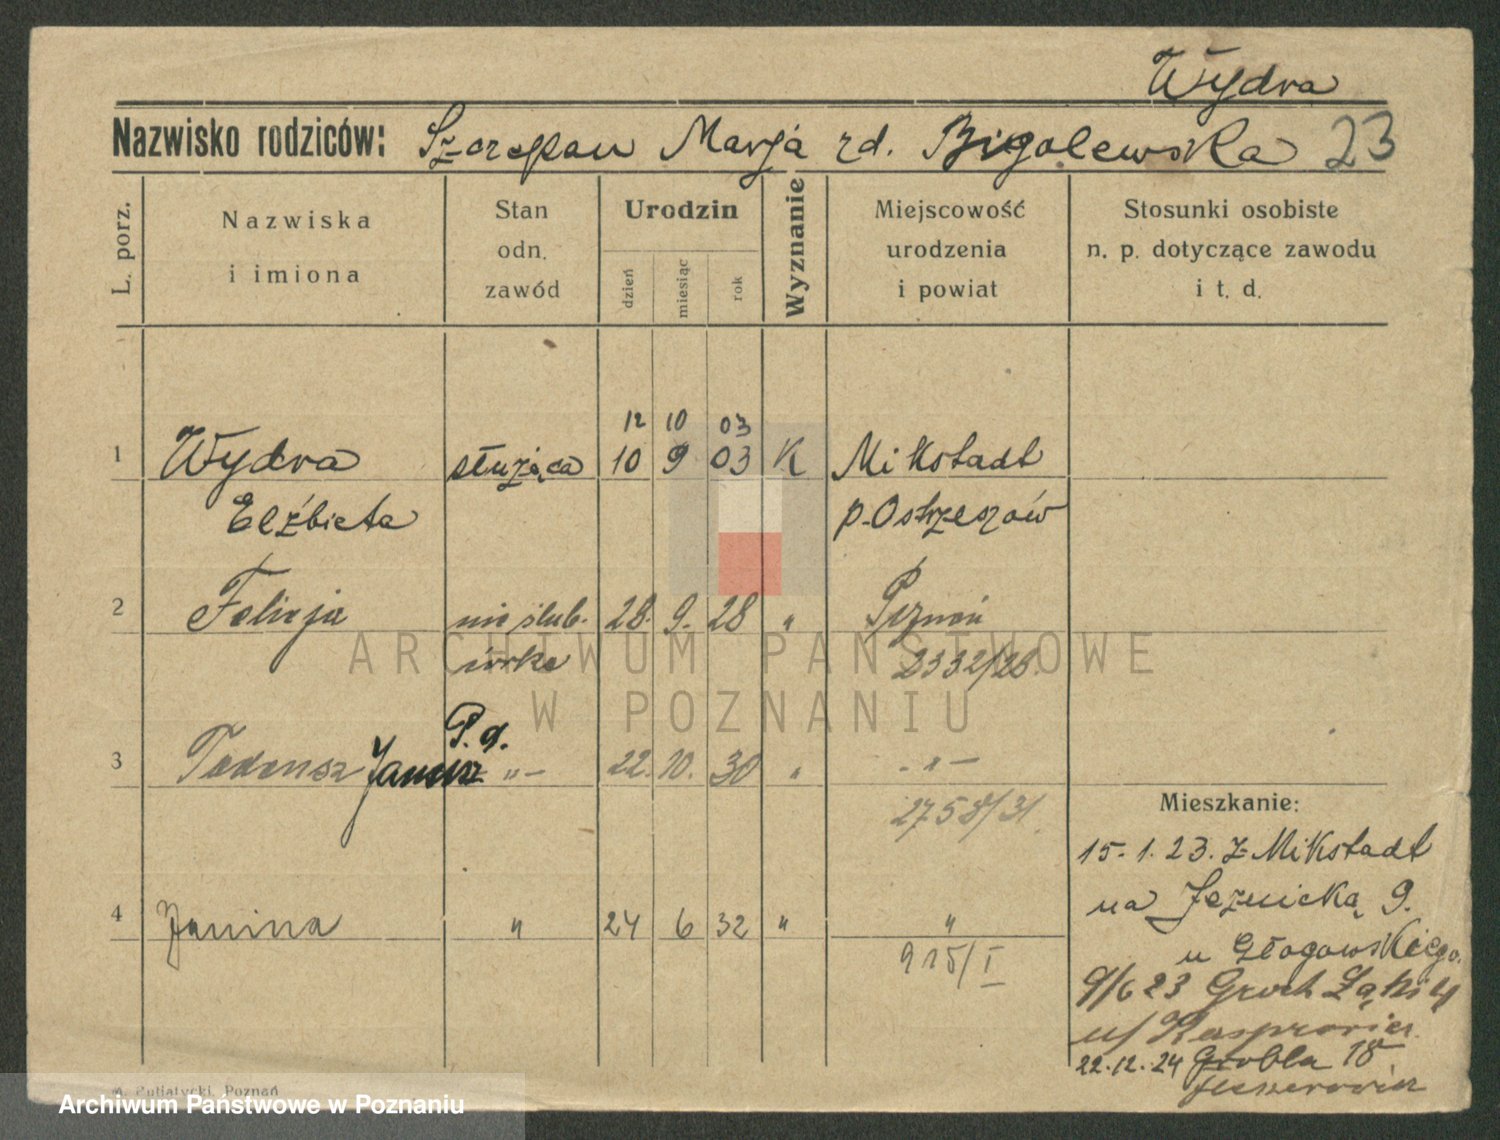 Wydra
Nazwisko rodziców: Szczepan Marja zd. Bigolewska 23
L. porz.
Nazwiska i imiona
Stan odn. zawód
Urodzin
dzień
miesiąc
rok
Wyznanie
Miejscowość urodzenia i powiat
Stosunki osobiste n. p. dotyczące zawodu i t. d.
12 10 03
1 Wydra służąca 10 9 03 K Mikstadt
Elżbieta p. Ostrzeszów
2 Felicja nieślub. 28. 9. 28 " Poznań
córka 2332/28.
P. d.
3 Tadeusz Janusz " 22. 10. 30 " - " -
2758/31.
4 Janina " 24 6 32 " "
915/I
Mieszkanie:
15. 1. 23. z Mikstadt
na Jeżnicką 9.
u Głogowskiego.
9/6 23 Groch Łąki 4
u/
22.12.24 Grobla 18
M. Putiatycki, Poznań
ARCHIWUM PAŃSTWOWE
W POZNANIU
Archiwum Państwowe w Poznaniu